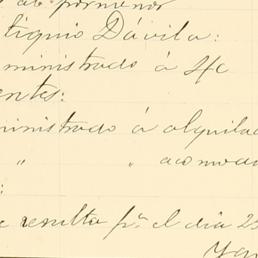 al pormenor
tiquio Dávila:
ministrado á 4c
entes:
ministrado á alquilad
" " acomoda
:
e resulta pª el dia 25